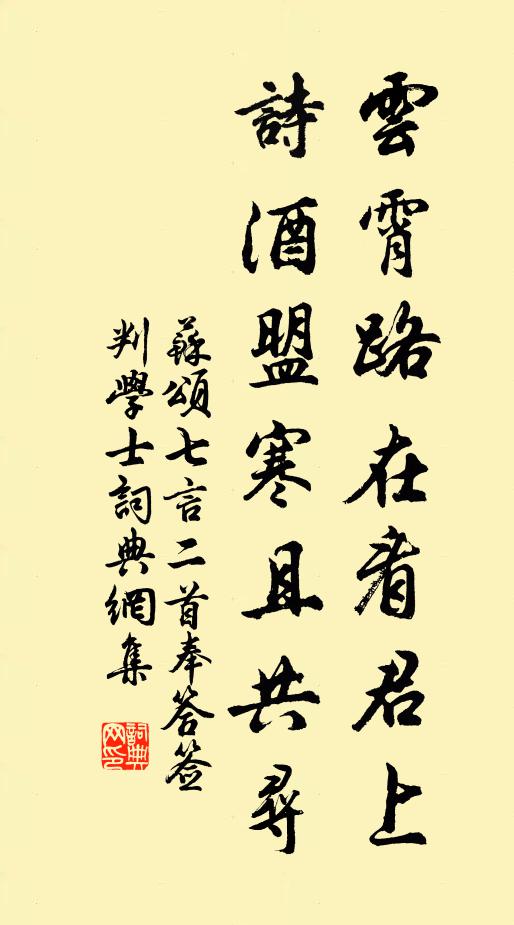 雲霄路在看君上
詩酒盟寒且共尋
蘇頌七言二首奉答簽
判學士詞典網集
詞典网印